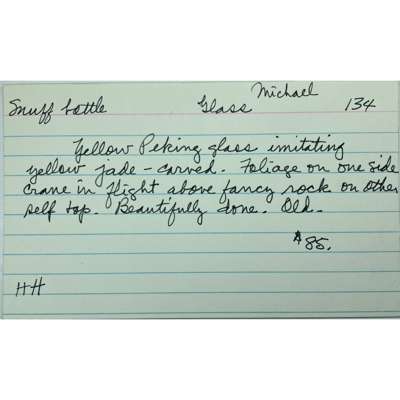 Michael
Snuff bottle Glass 134
Yellow Peking glass imitating
yellow jade - carved. Foliage on one side
crane in flight above fancy rock on other
self top. Beautifully done. Old.
$85.
HH